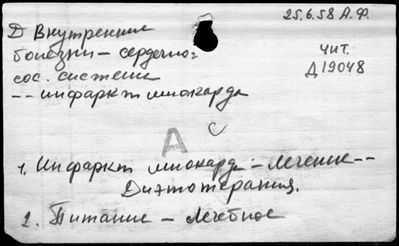 25.6.58 А.Ф.
Д Внутренние
болезни – сердечно=
сос. системы
-- инфаркт миокарда
чит.
Д19048
А
С
1. Инфаркт миокарда – лечение --
Диэтотерапия.
2. Питание – лечебное